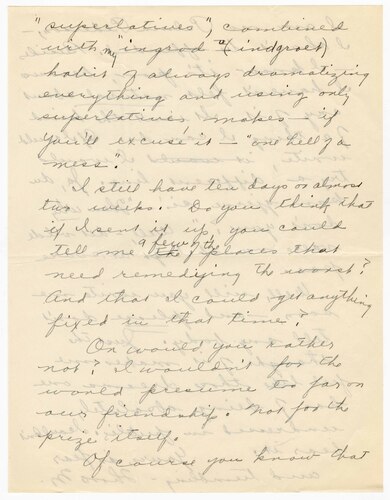 "superlatives", combined
with my "ingrod" (indgroet)
habit of always dramatizing
everything and using only
superlatives makes — if
you'll excuse it — "one hell of a
mess".
I still have ten days or almost
two weeks. Do you think that
if I sent it up, you could
tell me a few of the places that
need remedying the worst?
And that I could get anything
fixed in that time?
Or would you rather
not? I wouldn't for the
world presume too far on
our friendship. Not for the
prize itself.
Of course you know that